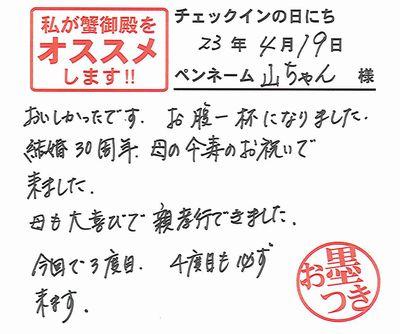 私が蟹御殿を
オススメ
します!!
チェックインの日にち
23年4月19日
ペンネーム 山ちゃん 様
おいしかったです。お腹一杯になりました.
結婚30周年.母の傘寿のお祝いで
来ました.
母も大喜びで親孝行できました.
今回で3度目.4度目も必ず
来ます.
お墨つき